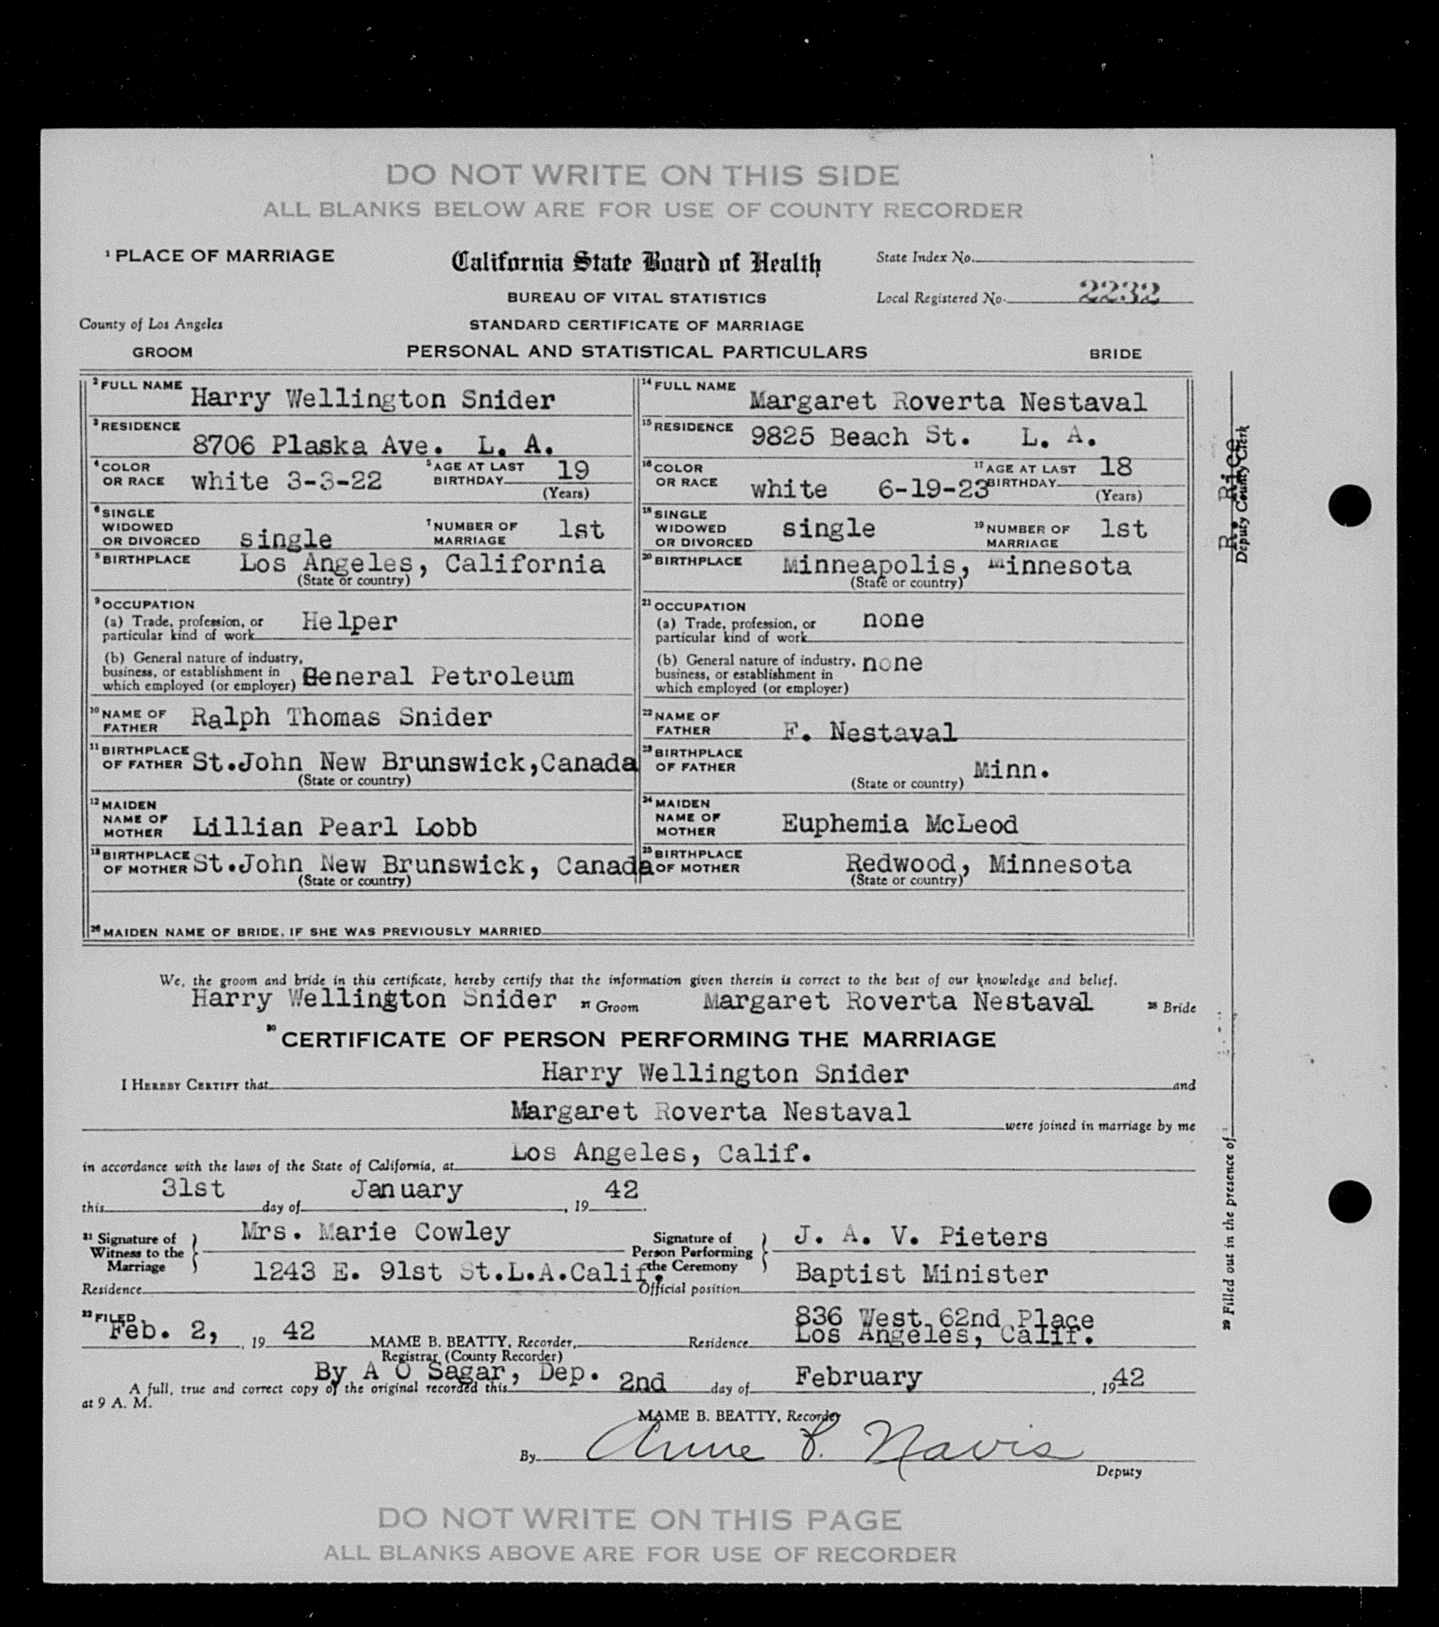 DO NOT WRITE ON THIS SIDE
ALL BLANKS BELOW ARE FOR USE OF COUNTY RECORDER
1 PLACE OF MARRIAGE
California State Board of Health
State Index No.
BUREAU OF VITAL STATISTICS
Local Registered No. 2232
County of Los Angeles
STANDARD CERTIFICATE OF MARRIAGE
GROOM
PERSONAL AND STATISTICAL PARTICULARS
BRIDE
2 FULL NAME Harry Wellington Snider
14 FULL NAME Margaret Roverta Nestaval
3 RESIDENCE 8706 Plaska Ave. L. A.
15 RESIDENCE 9825 Beach St. L. A.
4 COLOR OR RACE white 3-3-22
5 AGE AT LAST BIRTHDAY 19 (Years)
16 COLOR OR RACE white 6-19-23
17 AGE AT LAST BIRTHDAY 18 (Years)
6 SINGLE WIDOWED OR DIVORCED single
7 NUMBER OF MARRIAGE 1st
18 SINGLE WIDOWED OR DIVORCED single
19 NUMBER OF MARRIAGE 1st
8 BIRTHPLACE Los Angeles, California
(State or country)
20 BIRTHPLACE Minneapolis, Minnesota
(State or country)
9 OCCUPATION
(a) Trade, profession, or
particular kind of work Helper
21 OCCUPATION
(a) Trade, profession, or
particular kind of work none
(b) General nature of industry,
business, or establishment in
which employed (or employer) General Petroleum
(b) General nature of industry,
business, or establishment in
which employed (or employer) none
10 NAME OF FATHER Ralph Thomas Snider
22 NAME OF FATHER F. Nestaval
11 BIRTHPLACE OF FATHER St.John New Brunswick,Canada
(State or country)
23 BIRTHPLACE OF FATHER Minn.
(State or country)
12 MAIDEN NAME OF MOTHER Lillian Pearl Lobb
24 MAIDEN NAME OF MOTHER Euphemia McLeod
13 BIRTHPLACE OF MOTHER St.John New Brunswick, Canada
(State or country)
25 BIRTHPLACE OF MOTHER Redwood, Minnesota
(State or country)
26 MAIDEN NAME OF BRIDE, IF SHE WAS PREVIOUSLY MARRIED
We, the groom and bride in this certificate, hereby certify that the information given therein is correct to the best of our knowledge and belief.
Harry Wellington Snider 27 Groom Margaret Roverta Nestaval 28 Bride
30 CERTIFICATE OF PERSON PERFORMING THE MARRIAGE
I HEREBY CERTIFY that Harry Wellington Snider and
Margaret Roverta Nestaval were joined in marriage by me
in accordance with the laws of the State of California, at Los Angeles, Calif.
this 31st day of January, 19 42.
31 Signature of Witness to the Marriage } Mrs. Marie Cowley
Signature of Person Performing the Ceremony } J. A. V. Pieters
Residence 1243 E. 91st St.L.A.Calif.
Official position Baptist Minister
32 FILED Feb. 2, , 19 42 MAME B. BEATTY, Recorder,
Registrar (County Recorder)
Residence 836 West 62nd Place
Los Angeles, Calif.
By A O Sagar, Dep.
A full, true and correct copy of the original recorded this 2nd day of February, 1942
at 9 A. M.
MAME B. BEATTY, Recorder
By Anne P. Navis
Deputy
DO NOT WRITE ON THIS PAGE
ALL BLANKS ABOVE ARE FOR USE OF RECORDER
29 Filled out in the presence of R. Rice
Deputy County Clerk